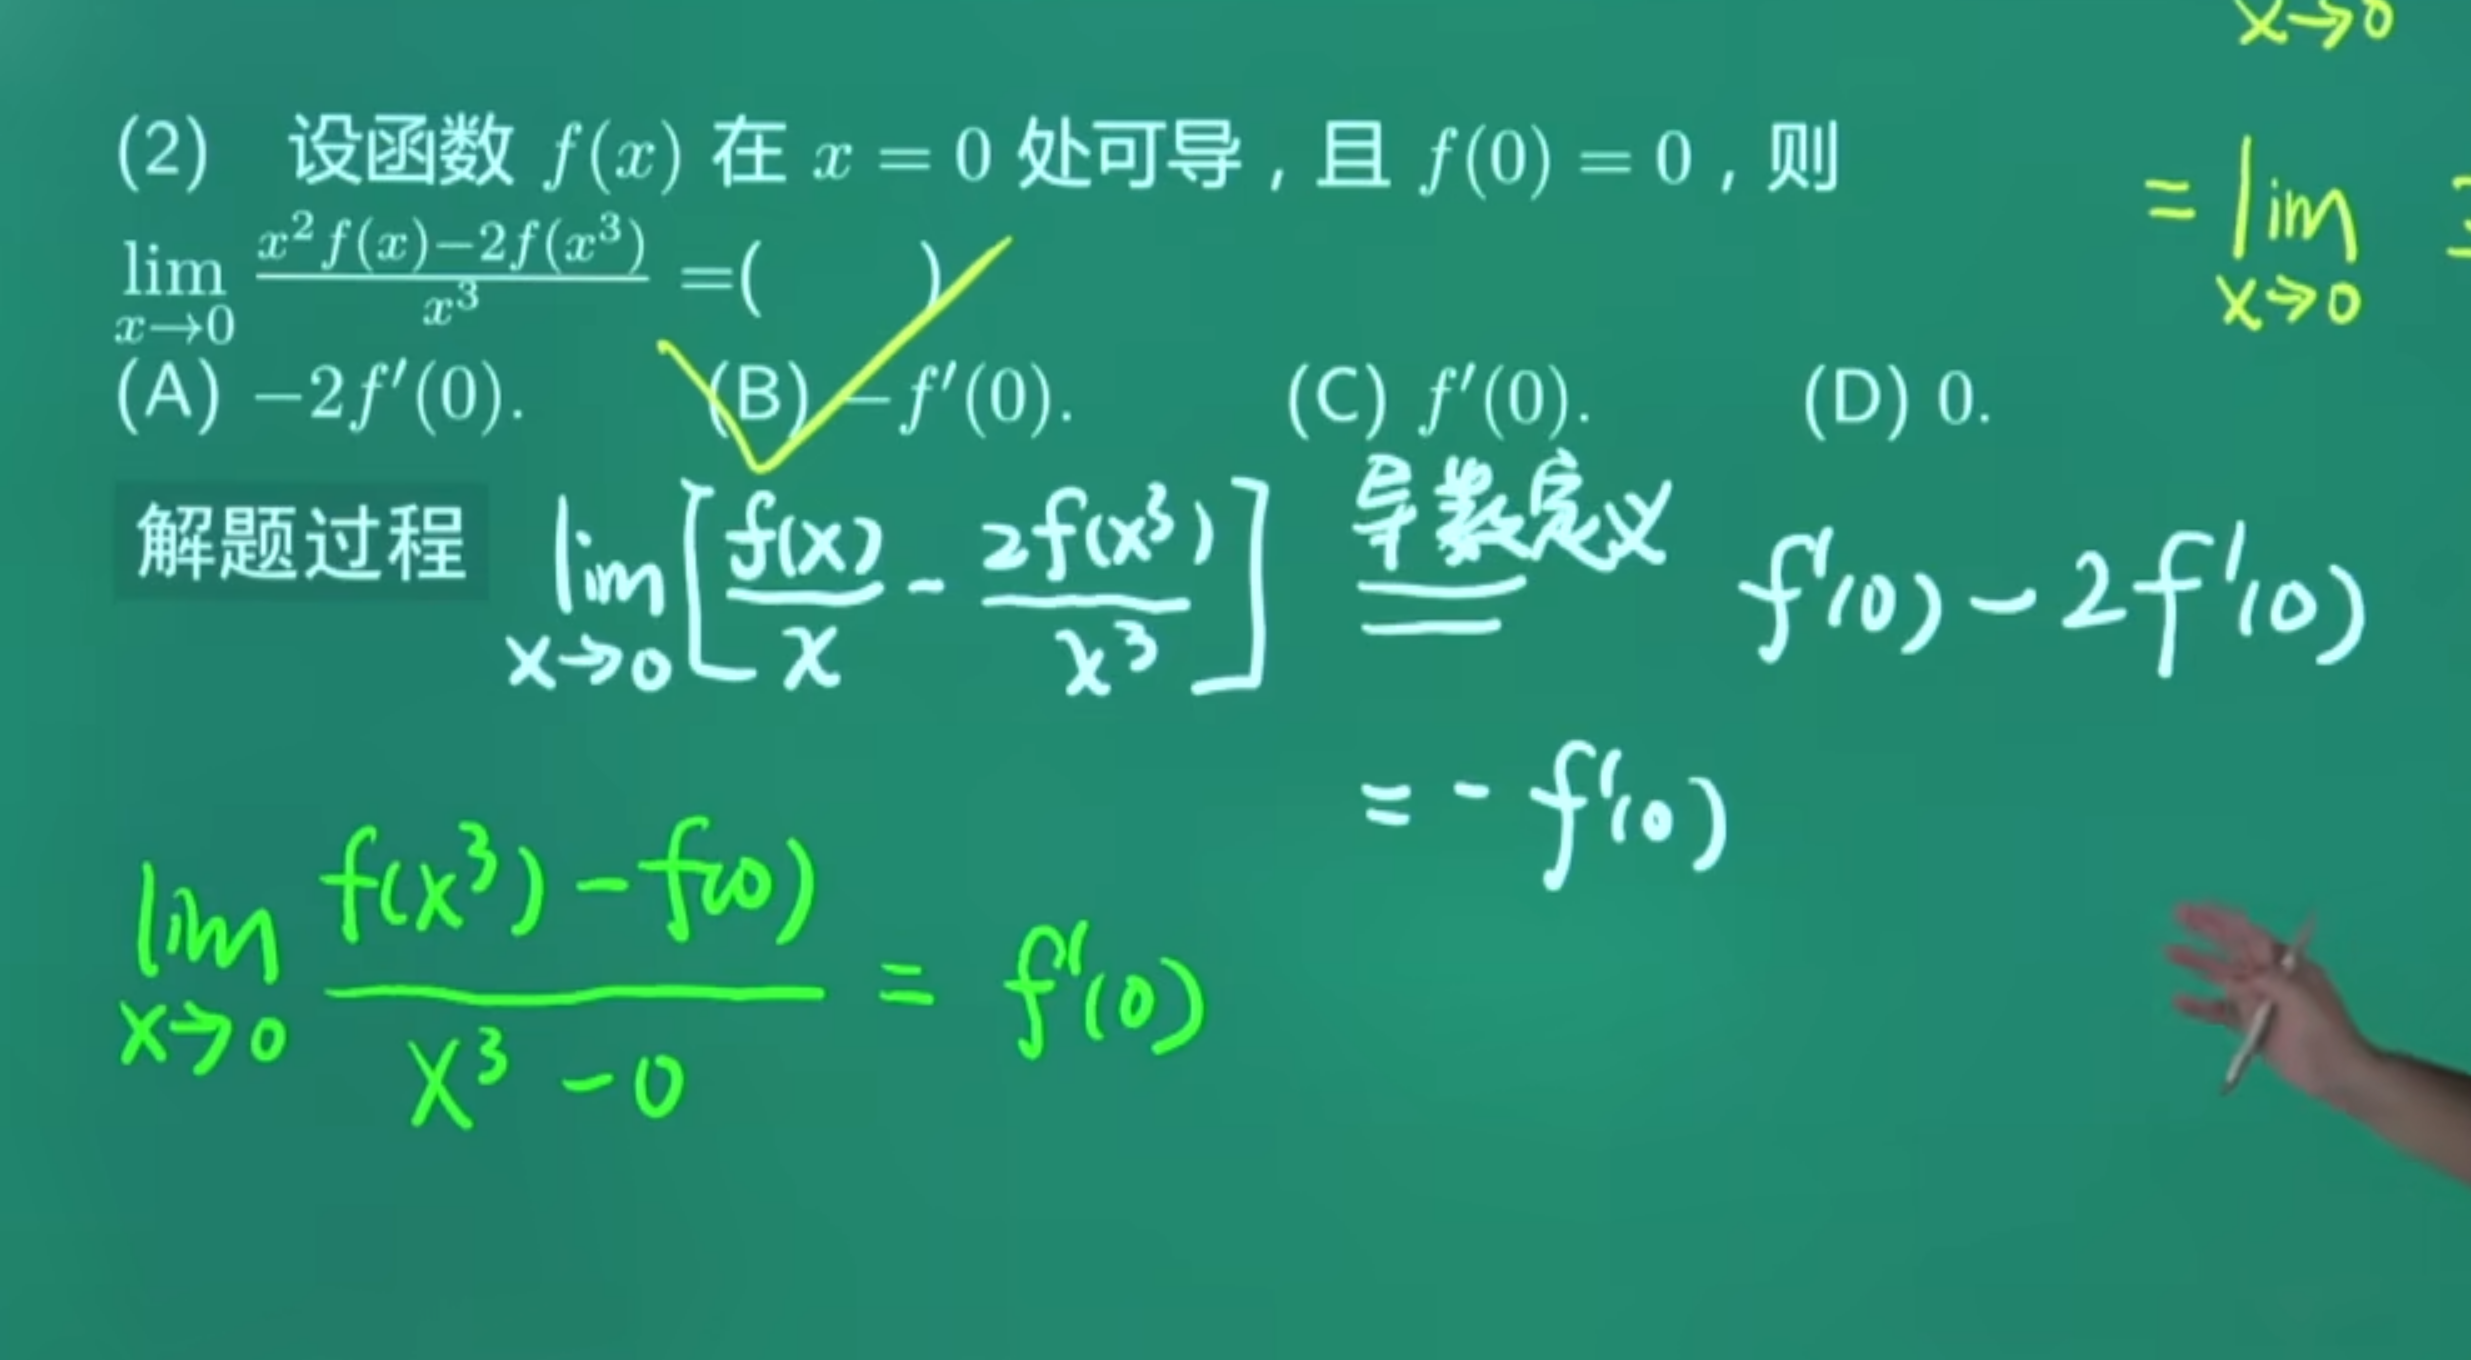 x→0
(2) 设函数 f(x) 在 x = 0 处可导，且 f(0) = 0，则
lim x→0 (x²f(x)−2f(x³))/x³ =( )
= lim x→0
(A) −2f′(0). (B) −f′(0). (C) f′(0). (D) 0.
解题过程 lim x→0 [f(x)/x − 2f(x³)/x³] 导数定义 = f′(0) − 2f′(0)
= − f′(0)
lim x→0 (f(x³) − f(0))/(x³ − 0) = f′(0)